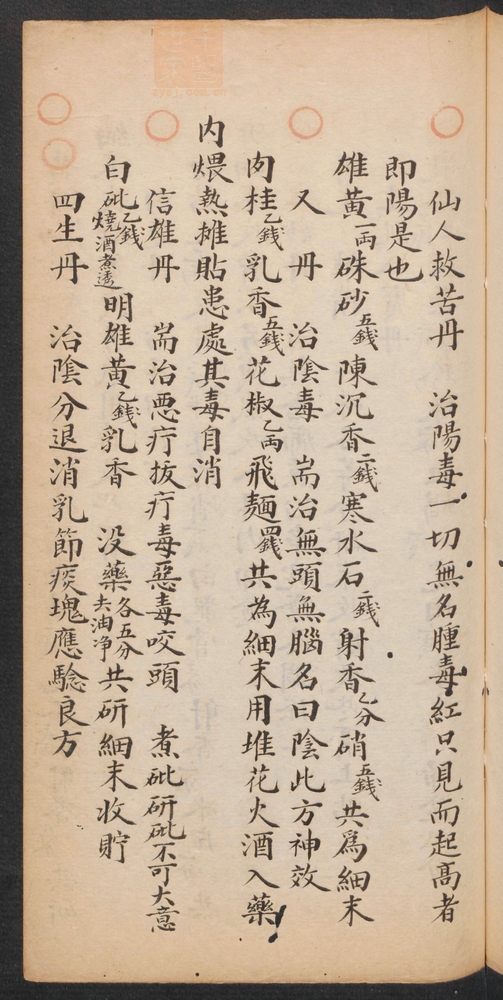 仙人救苦丹　治陽毒一切無名腫毒紅只見而起高者
即陽是也
雄黃一両硃砂五錢陳沉香二錢寒水石二錢射香乙分硝五錢共為細末
又　丹　治陰毒　耑治無頭無腦名曰陰此方神效
肉桂乙錢乳香五錢花椒乙両飛麺四錢共為細末用堆花火酒入藥
內煨熱摊貼患處其毒自消
信雄丹　耑治悪疔拔疔毒惡毒咬頭　煮砒研砒不可大意
白砒乙錢燒酒煮透明雄黃乙錢乳香　没藥各五分去油净共研細末收貯
四生丹　治陰分退消乳節痰塊應驗良方